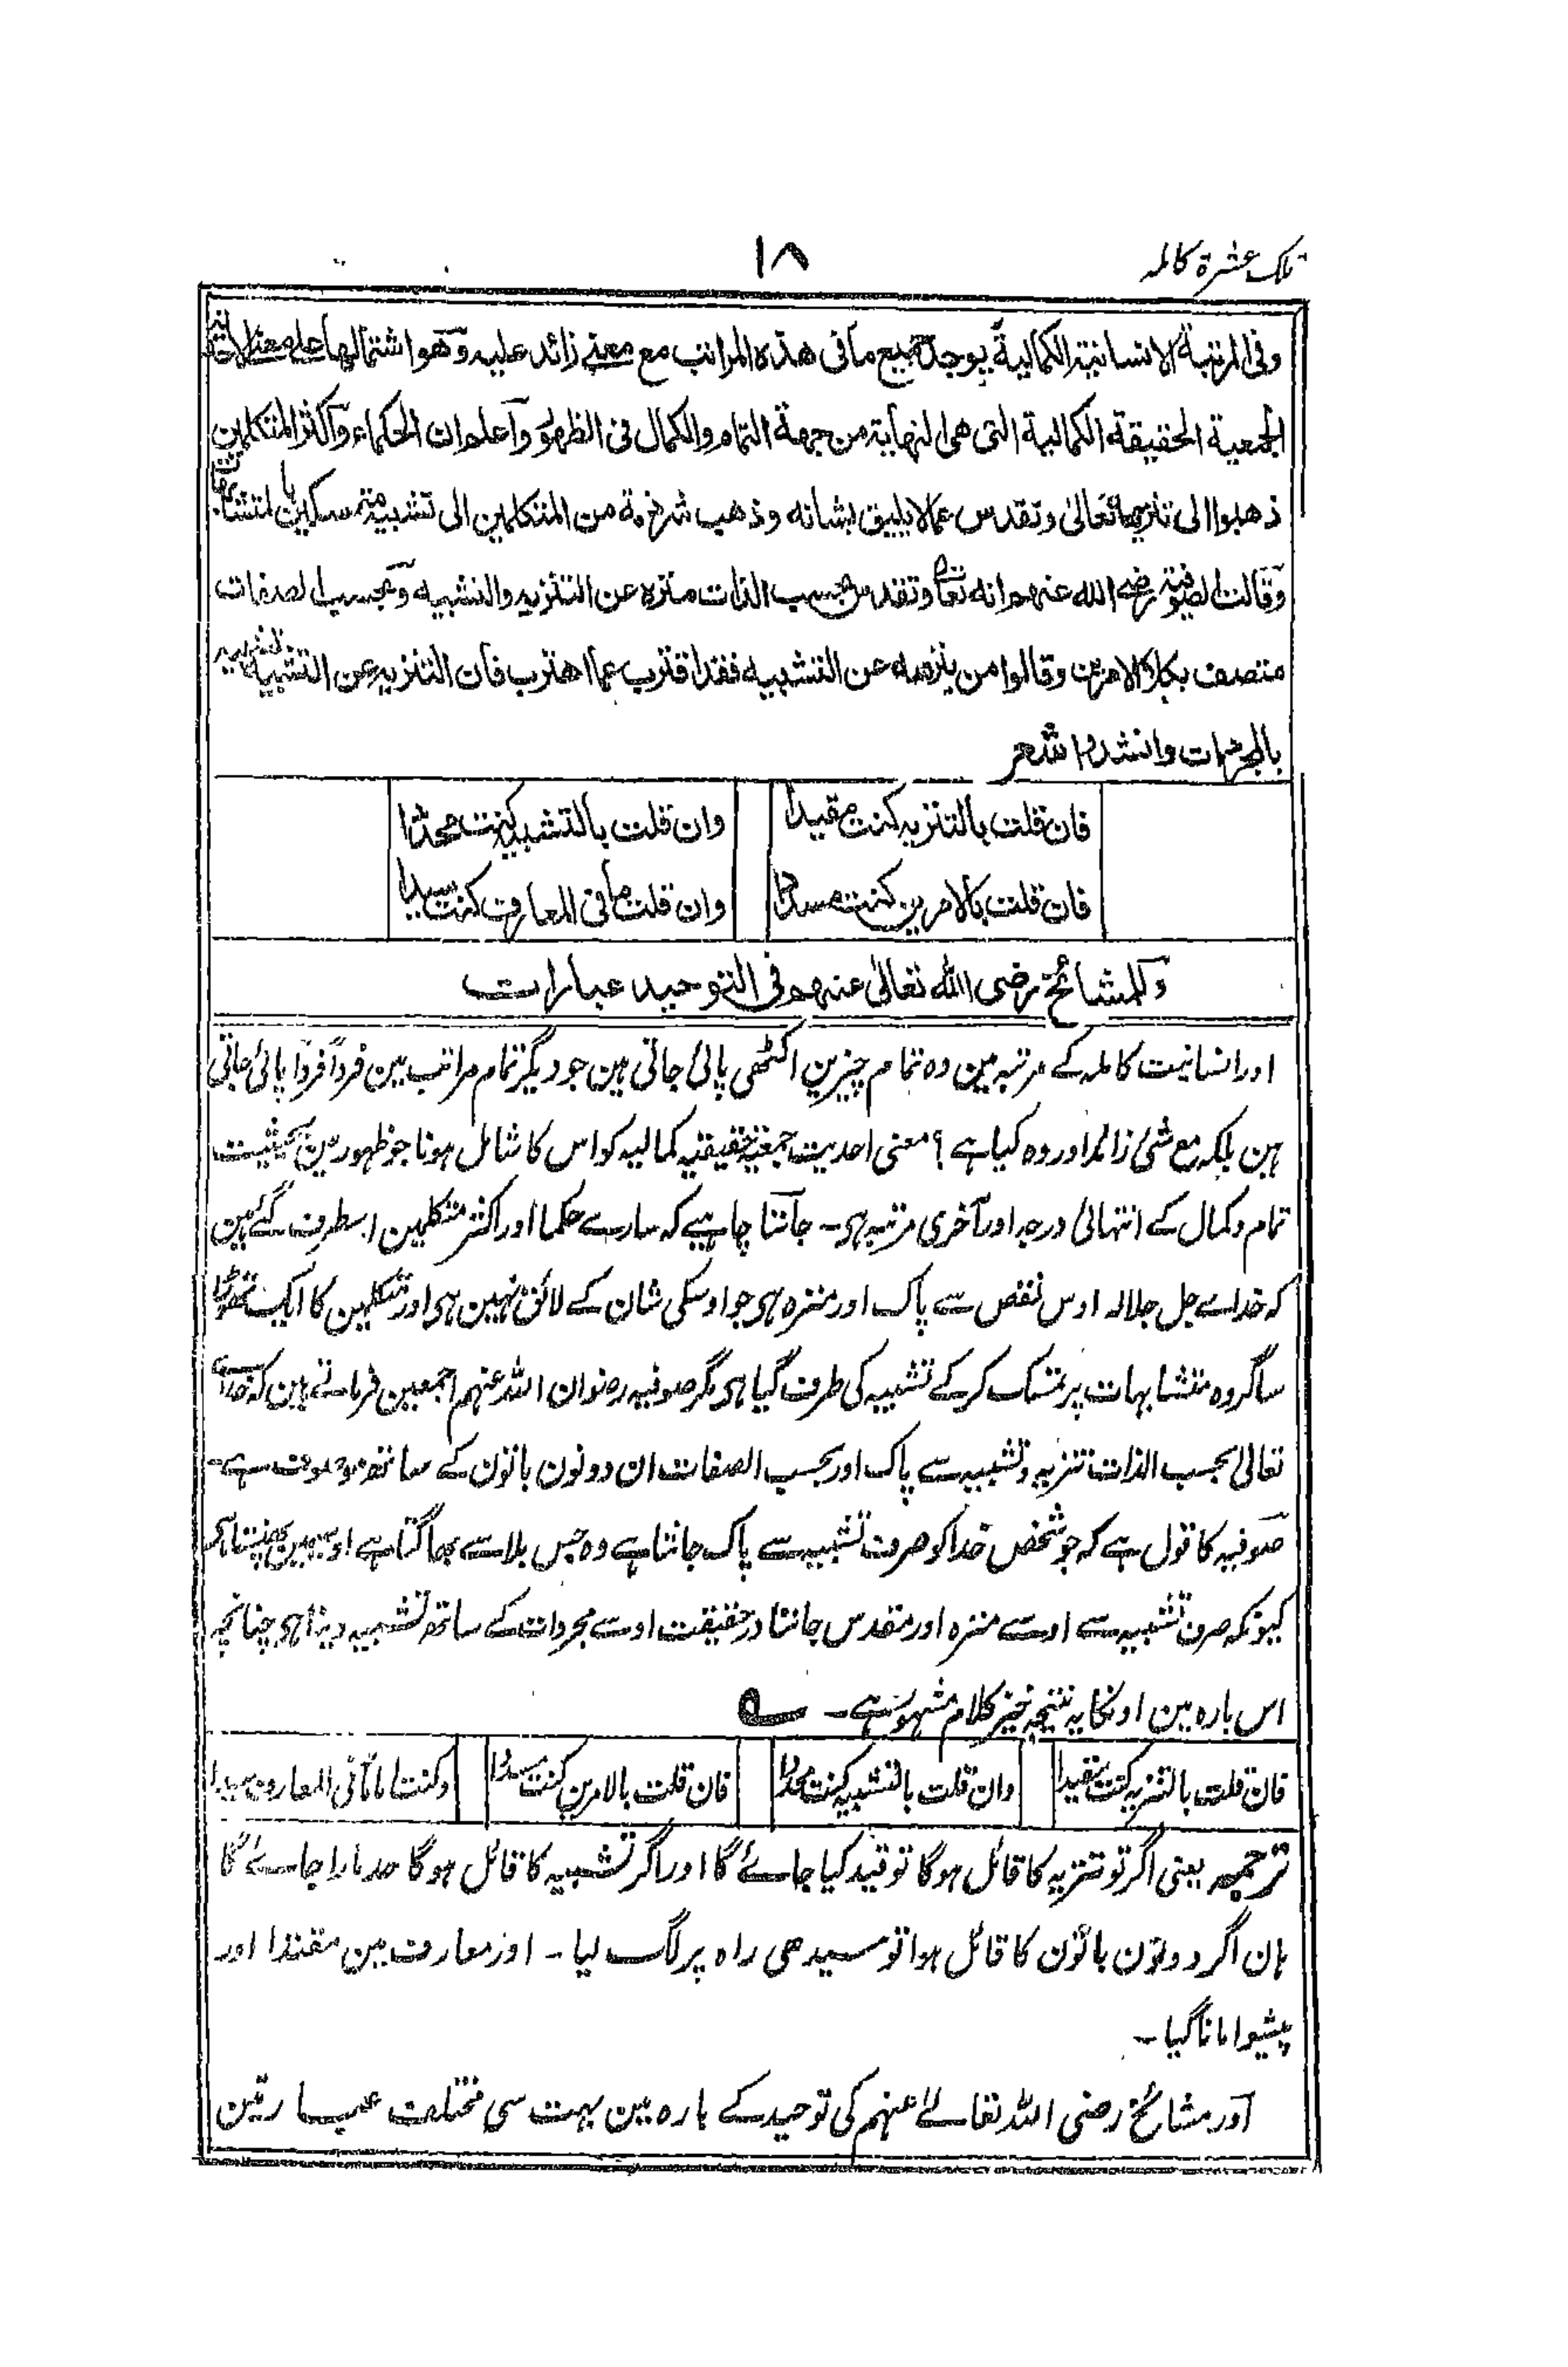 تلک عشرة کاملہ
۱۸
وفی المرتبة الانسانیة الکمالیة یوجد جمیع ما فی هذه المراتب مع معنے زائد علیه وهو اشتمالها علے معنے الاحدیة
الجمعیة الحقیقة الکمالیة التی هی النهایة من جهة التمام والکمال فی الظهور واعلم ان الحکماء واکثر المتکلمین
ذهبوا الی تنزیهه تعالیٰ وتقدس عما لا یلیق بشانه وذهب شرذمة من المتکلمین الی تشبیه متمسکین بالمتشابهات
وقالت الصوفیة رضے الله عنهم انه تعا وتقدس بحسب الذات منزه عن التنزیه والتشبیه وبحسب الصفات
متصف بکلا الامرین وقالوا من ینزهه عن التشبیه فقد اقترب عما اهترب فان التنزیه عن التشبیه تشبیه
بالمجردات وانشدوا شعر
فان قلت بالتنزیه کنت مقیدا وان قلت بالتشبیه کنت محددا
فان قلت بالامرین کنت مسددا وان قلت ما فی المعارف کنت سیدا
وللمشائخ رضی الله تعالیٰ عنهم فی التوحید عبارات
اور انسانیت کاملہ کے مرتبہ مین وہ تمام چیزین اکٹھی پائی جاتی ہین جو دیگر تمام مراتب مین فرداً فرداً پائی جاتی
ہین بلکہ مع شئ زائد اور وہ کیا ہے ؟ معنی احدیت جمعیۃ حقیقیہ کمالیہ کو اس کا شامل ہونا جو ظہور مین بحیثیت
تمام وکمال کے انتہائی درجہ اور آخری مرتبہ ہی۔ جاننا چاہیے کہ سارے حکما اور اکثر متکلمین اسطرف گئے ہین
کہ خداے جل جلالہ اوس نقص سے پاک اور منزہ ہی جو اوسکی شان کے لائق نہین ہی اور متکلمین کا ایک تھوڑا
سا گروہ متشابہات پر تمسک کرکے تشبیہ کی طرف گیا ہی مگر صوفیہ رضوان اللہ عنہم اجمعین فرماتے ہین کہ خداے
تعالیٰ بحسب الذات تنزیہ وتشبیہ سے پاک اور بحسب الصفات ان دونون باتون کے ساتھ موصوف ہے۔
صوفیہ کا قول ہے کہ جو شخص خدا کو صرف تشبیہ سے پاک جانتا ہے وہ جس بلا سے بھاگتا ہے اوسیمین پھنستا ہی
کیونکہ صرف تشبیہ سے اوسے منزہ اور مقدس جاننا درحقیقت اوسے مجردات کے ساتھ تشبیہ دینا ہی چنانچہ
اس بارہ مین اونکا یہ نتیجہ خیز کلام مشہور ہے۔ ؎
فان قلت بالتنزیہ کنت مقیدا وان قلت بالتشبیہ کنت محددا فان قلت بالامرین کنت مسددا وکنت اماماً فی المعارف سیدا
ترجمہ یعنی اگر تو تنزیہ کا قائل ہوگا تو قید کیا جائے گا اور اگر تشبیہ کا قائل ہوگا حد مارا جائے گا
ہان اگر دونون باتون کا قائل ہوا تو سیدھی راہ پر لگ لیا۔ اور معارف مین مقتدا اور
پیشوا مانا گیا۔
اور مشائخ رضی اللہ تعالےٰ عنہم کی توحید کے بارہ مین بہت سی مختلف عبارتین